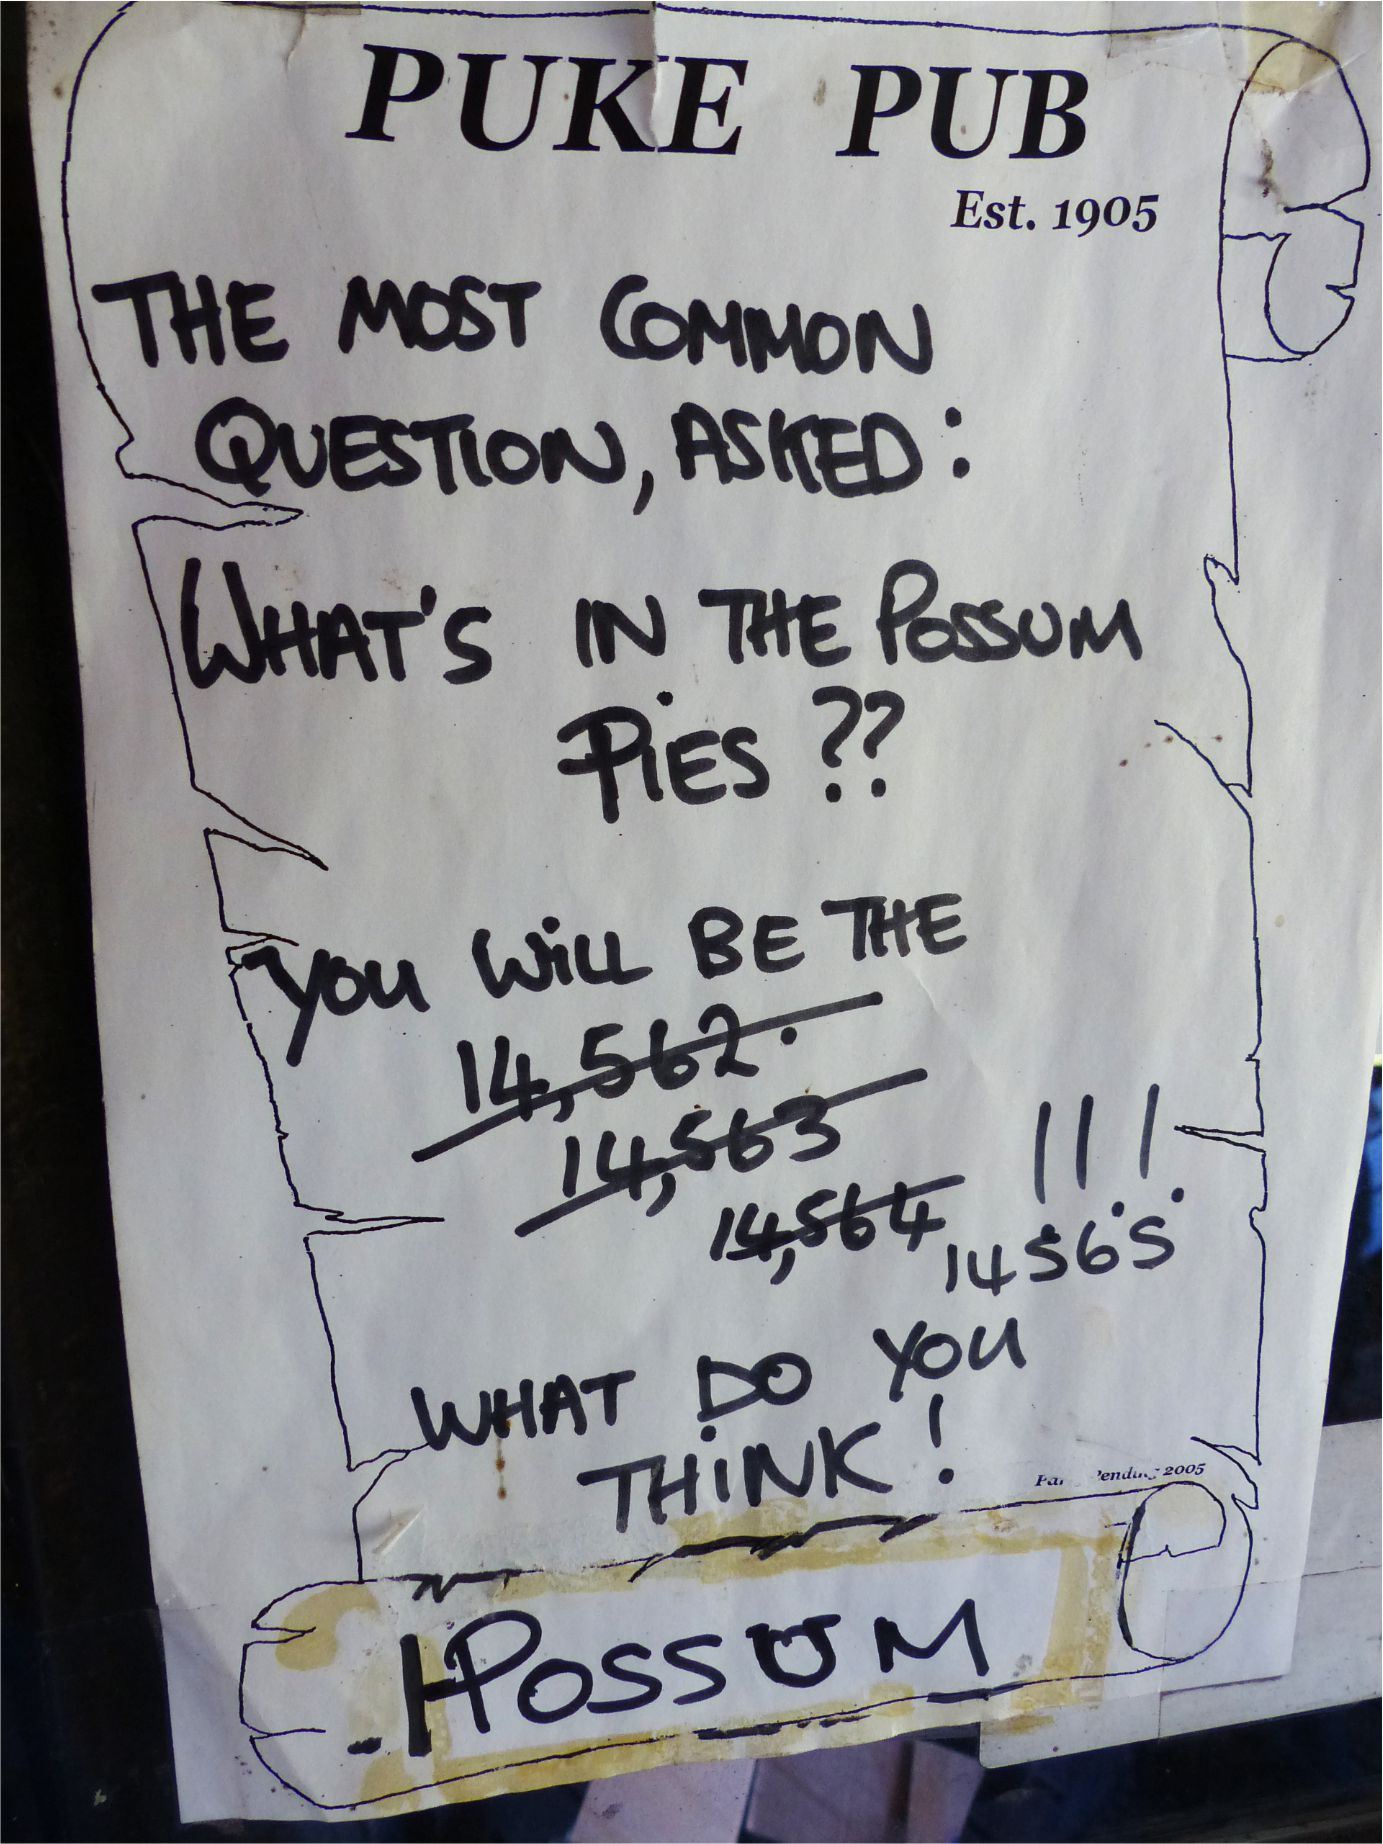 PUKE PUB
Est. 1905
THE MOST COMMON
QUESTION, ASKED:
WHAT'S IN THE POSSUM
PIES ??
YOU WILL BE THE
14,562.
14,563
14,564 !!!
14565
WHAT DO YOU
THINK!
2005
POSSUM